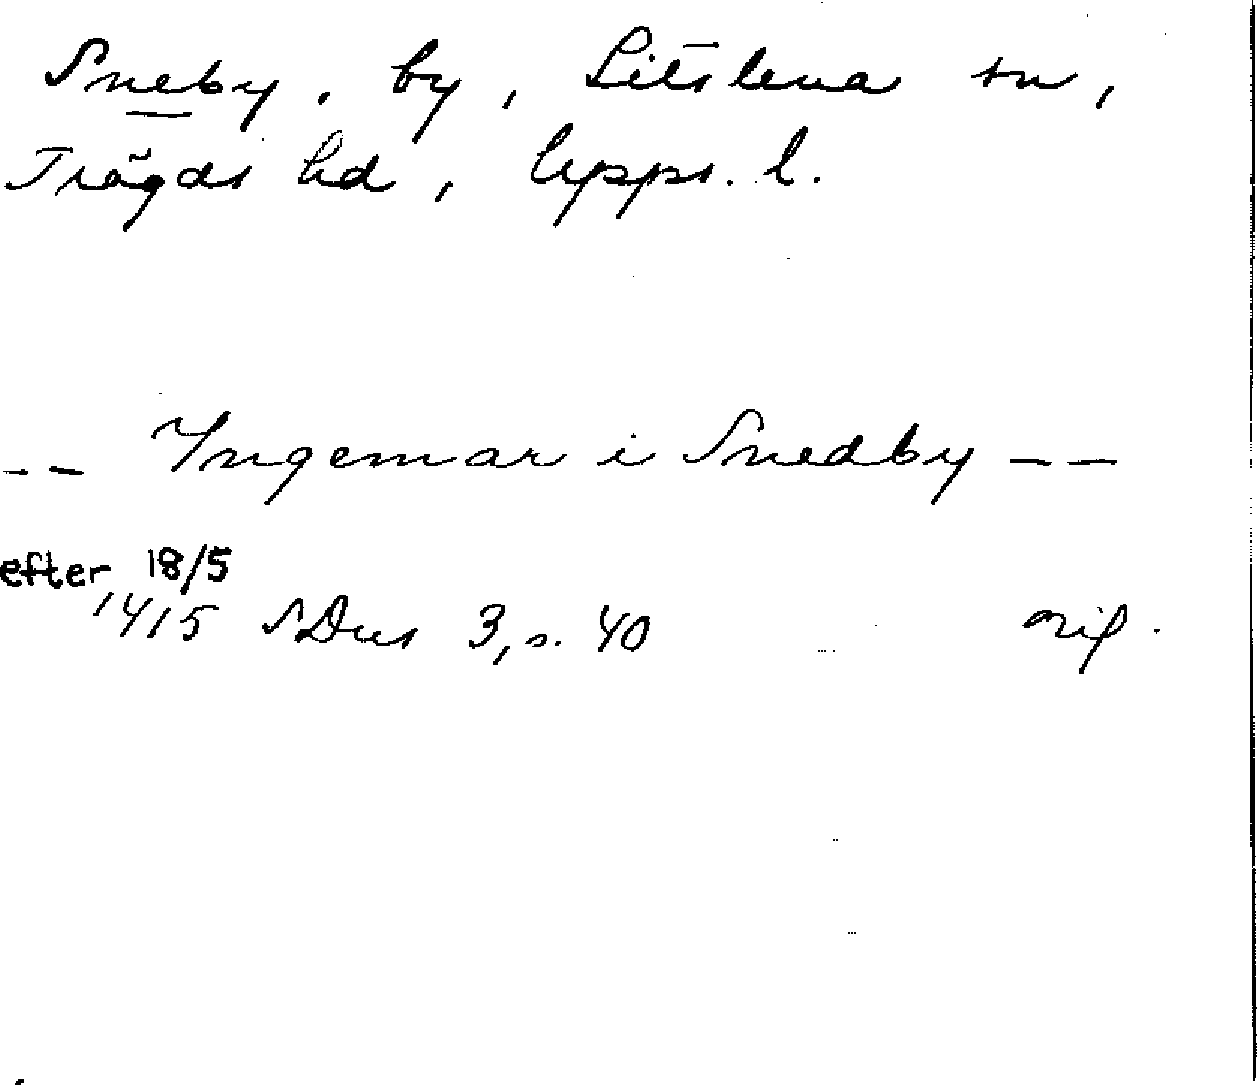 Sneby, by, Litslena sn,
Trögds hd, Upps. l.
-- Ingemar i Snedby --
efter 18/5
1415 SDns 3, s. 40 orig.